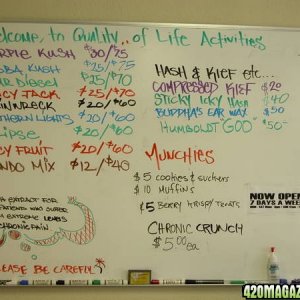 elcome to Quality of Life Activities
RPLE KUSH $30/75
BBA KUSH $25/75
AR DIESEL $25/70
CY JACK $25/70
AINWRECK $20/60
THERN LIGHTS $20/60
LIPSE $20/60
CY FRUIT $20/60
NDO MIX $12/40
HASH & KIEF etc...
COMPRESSED KIEF $20
STICKY ICKY HASH $40
BUDDHA'S EAR WAX $50
HUMBOLDT GOO $50
MUNCHIES
$5 cookies & suckers
$10 MUFFINS
$5 BERRY KRISPY TREATS
CHRONIC CRUNCH
$5.00 ea.
H EXTRACT FOR
PATIENTS WHO SUFFER
EXTREME LEVELS
CHRONIC PAIN
LEASE BE CAREFUL
NOW OPEN
7 DAYS A WEE
420MAGAZ